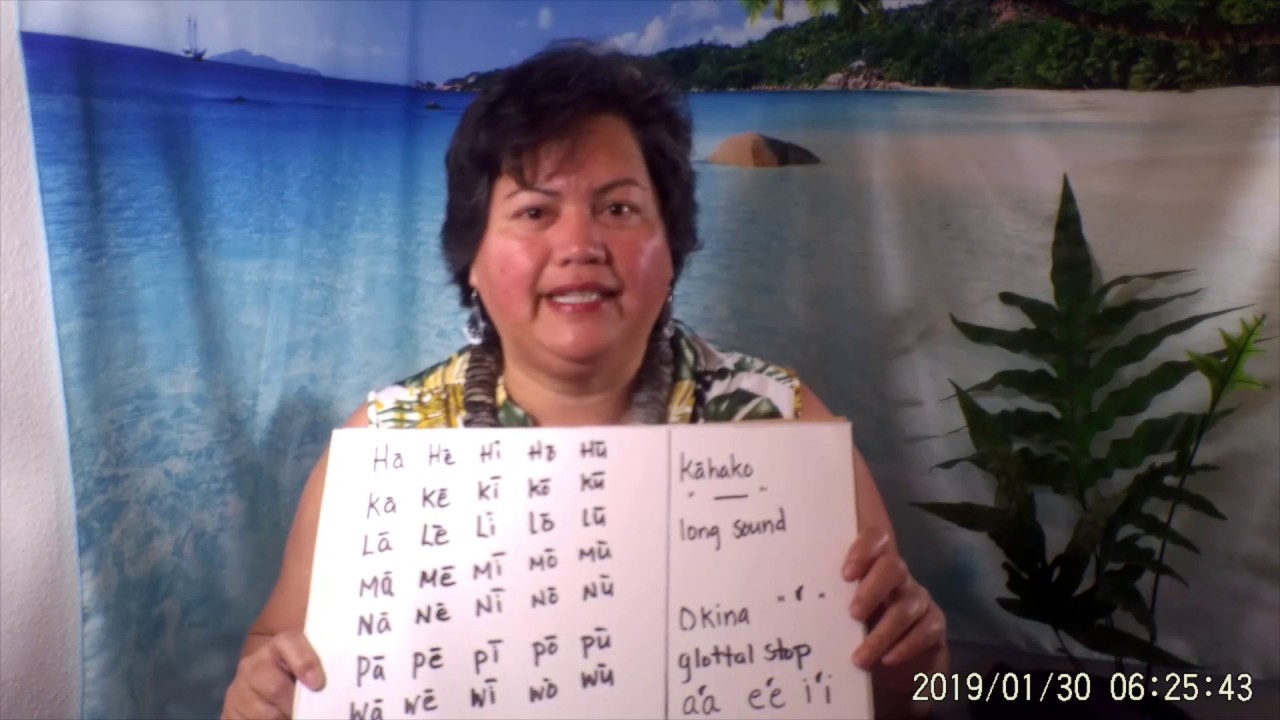 Hā Hē Hī Hō Hū
kā kē kī kō kū
Lā Lē Lī Lō Lū
Mā Mē Mī Mō Mū
Nā Nē Nī Nō Nū
pā pē pī pō pū
wā wē wī wō wū
kāhako
- — -
long sound
Okina - ʻ -
glottal stop
aʻa eʻe iʻi
2019/01/30 06:25:43